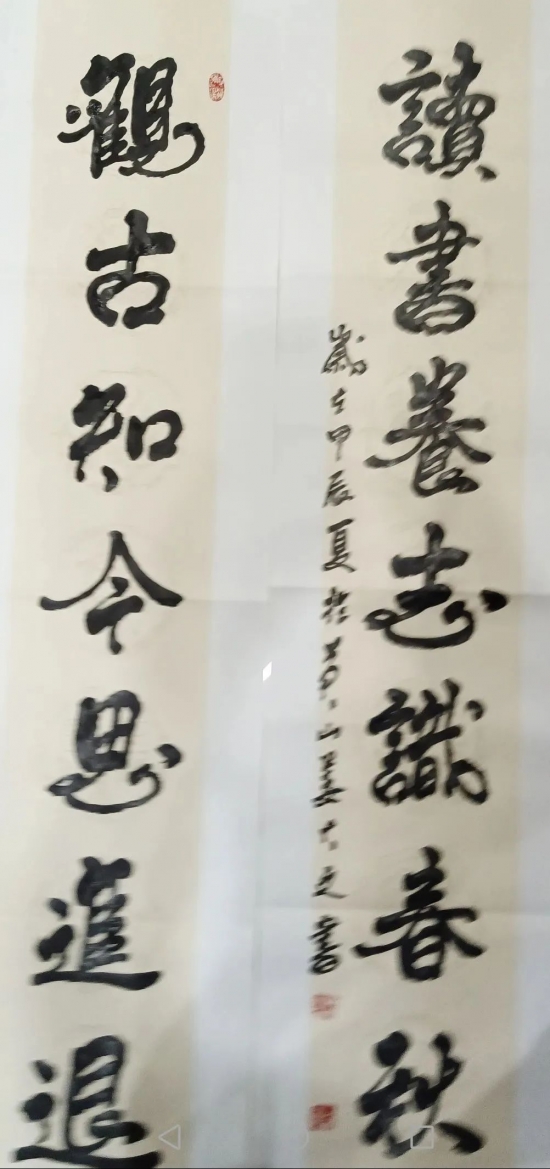 讀書養志識春秋
歲在甲辰夏於山書
觀古知今思進退